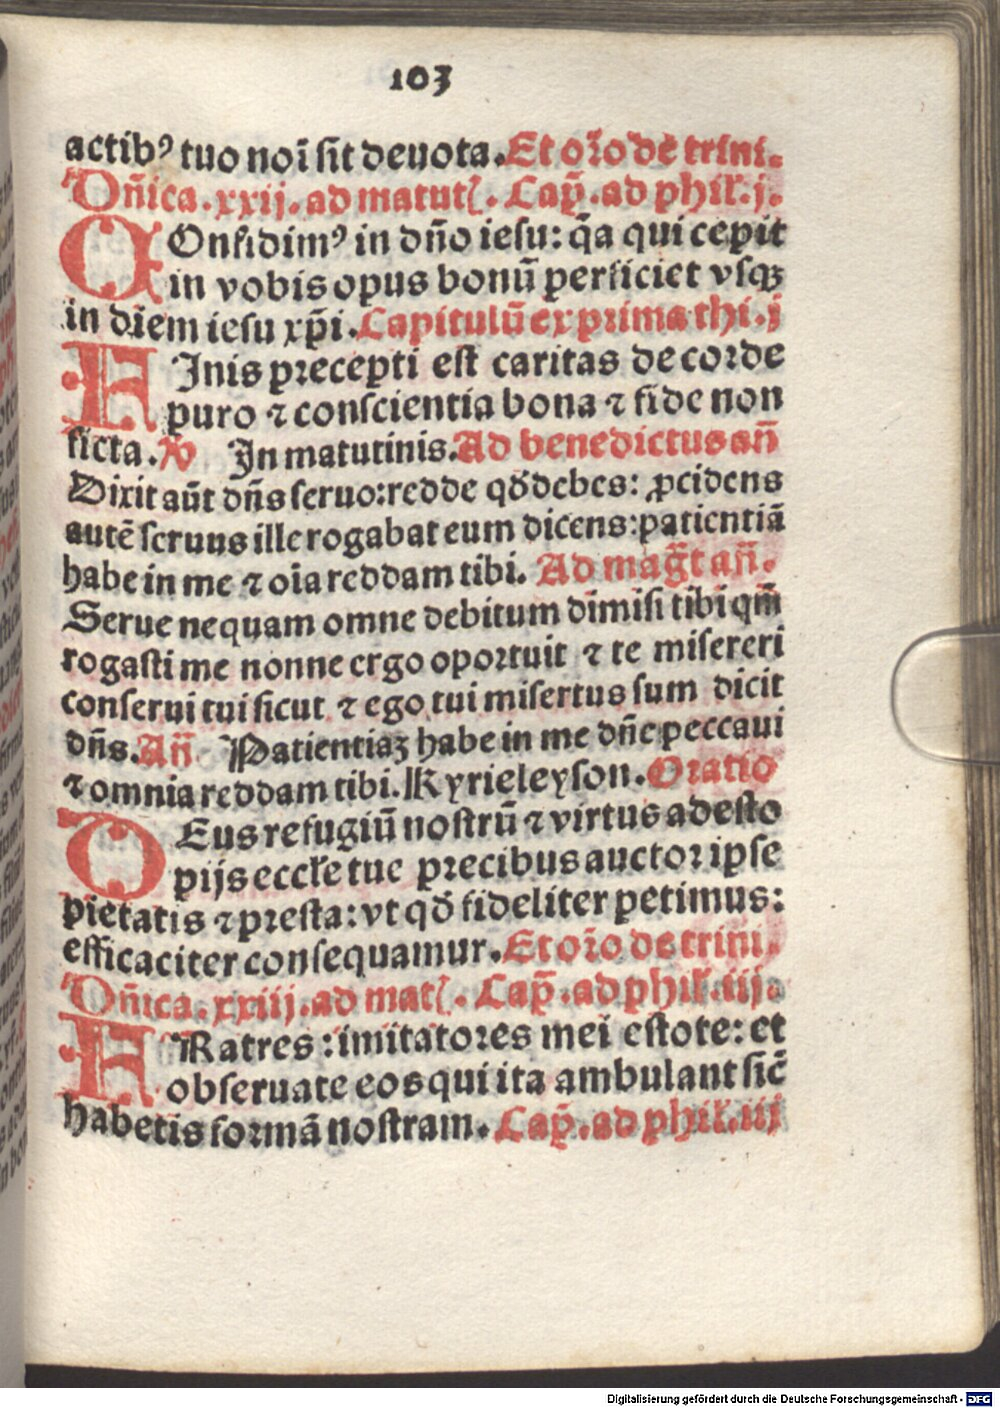 103
actibꝰ tuo noī sit deuota. Et or̄o de trini.
Dn̄ica. xxij. ad matutꝭ. Cap̄. ad phil'. j.
COnfidimꝰ in dn̄o iesu: q̄a qui cepit
in vobis opus bonū perficiet vsqꝫ
in diem iesu xp̄i. Capitulū ex prima thi. j
FJnis precepti est caritas de corde
puro ⁊ conscientia bona ⁊ fide non
ficta. ℟ In matutinis. Ad benedictus an̄
Dixit aūt dn̄s seruo: redde qd̄ debes: ꝓcidens
autē seruus ille rogabat eum dicens: patientiā
habe in me ⁊ oīa reddam tibi. Ad mag̅t an̄.
Serue nequam omne debitum dimisi tibi qm̄
rogasti me nonne ergo oportuit ⁊ te misereri
conserui tui sicut ⁊ ego tui misertus sum dicit
dn̄s. An̄ Patientiaꝫ habe in me dn̄e peccaui
⁊ omnia reddam tibi. Kyrieleyson. Oratio
DEus refugiū nostrū ⁊ virtus adesto
pijs eccl'e tue precibus auctor ipse
pietatis ⁊ presta: vt qd̄ fideliter petimus:
efficaciter consequamur. Et or̄o de trini.
Dn̄ica. xxiij. ad matꝭ. Cap̄. ad phil'. iij.
FRatres: imitatores mei estote: et
obseruate eos qui ita ambulant sic̄
habetis formā nostram. Cap̄. ad phil'. iij
Digitalisierung gefördert durch die Deutsche Forschungsgemeinschaft - DFG